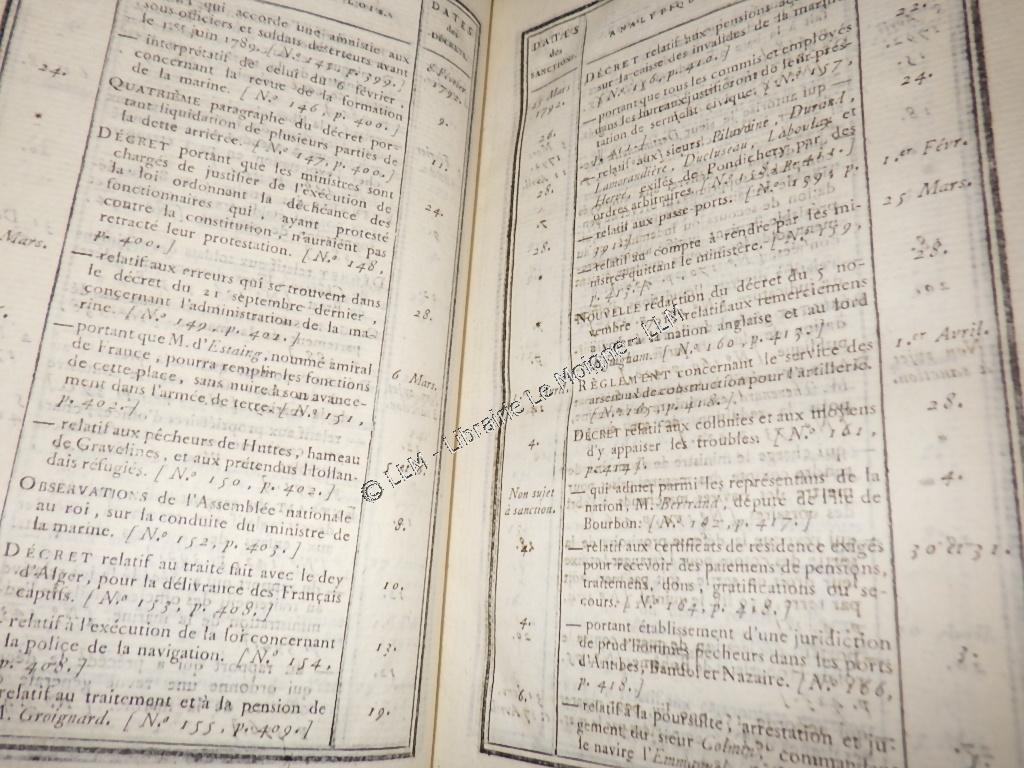 DATES
des
DÉCRETS.
qui accorde une amnistie aux
sous-officiers et soldats déserteurs avant
le 1.er juin 1789. [N.º 145, p. 399.]
— interprétatif de celui du 6 février,
concernant la revue de la formation
de la marine. [N.º 146, p. 400.]
QUATRIÈME paragraphe du décret por-
tant liquidation de plusieurs parties de
la dette arriérée. [N.º 147, p. 400.]
DÉCRET portant que les ministres sont
chargés de justifier de l'exécution de
la loi ordonnant la déchéance des
fonctionnaires qui, ayant protesté
contre la constitution, n'auraient pas
retracté leur protestation. [N.º 148,
p. 400.]
— relatif aux erreurs qui se trouvent dans
le décret du 21 septembre dernier,
concernant l'administration de la ma-
rine. [N.º 149, p. 402.]
— portant que M. d'Estaing, nommé amiral
de France, pourra remplir les fonctions
de cette place, sans nuire à son avance-
ment dans l'armée de terre. [N.º 151,
p. 402.]
— relatif aux pêcheurs de Huttes, hameau
de Gravelines, et aux prétendus Hollan-
dais réfugiés. [N.º 150, p. 402.]
OBSERVATIONS de l'Assemblée nationale
au roi, sur la conduite du ministre de
la marine. [N.º 152, p. 403.]
DÉCRET relatif au traité fait avec le dey
d'Alger, pour la délivrance des Français
captifs. [N.º 153, p. 408.]
relatif à l'exécution de la loi concernant
la police de la navigation. [N.º 154,
p. 408.]
relatif au traitement et à la pension de
M. Groignard. [N.º 155, p. 409.]
24.
Mars.
8 Février
1792.
9.
11.
24.
28.
6 Mars.
8.
10.
13.
19.
DATES
des
SANCTIONS.
1792.
26.
28.
28.
4.
Non sujet
à sanction.
4.
6.
DÉCRET relatif aux pensions
sur la caisse des invalides de la marine
[N.º 156, p. 410.]
— portant que tous les commis et employés
dans les bureaux justifieront de leur pres-
tation de serment civique. [N.º 157,
— relatif aux sieurs Pilavoine, Durand,
Lamorandière, Ducluseau, Laboulay et
exilés de Pondichery par des
ordres arbitraires. [N.º 158, p. 412.]
— relatif aux passe-ports. [N.º 159, p.
— relatif au compte à rendre par les mi-
nistres quittant le ministère. [N.º 159,
p. 413.]
NOUVELLE rédaction du décret du 5 no-
vembre relatif aux remerciemens
à la nation anglaise et au lord
[N.º 160, p. 413.]
RÈGLEMENT concernant le service des
arsenaux de construction pour l'artillerie.
[N.º 165, p. 418.]
DÉCRET relatif aux colonies et aux moyens
d'y appaiser les troubles. [N.º 161,
p. 414.]
— qui admet parmi les représentans de la
nation, M. Bertrand, député de l'île de
Bourbon. [N.º 162, p. 417.]
— relatif aux certificats de résidence exigés
pour recevoir des paiemens de pensions,
traitemens, dons, gratifications ou se-
cours. [N.º 164, p. 418.]
— portant établissement d'une juridiction
de prud'hommes pêcheurs dans les ports
d'Antibes, Bandol et Nazaire. [N.º 166,
p. 418.]
— relatif à la poursuite, arrestation et ju-
gement du sieur
le navire l'
22.
1792.
24.
1.er Févr.
25 Mars.
28.
1.er Avril.
28.
4.
30 et 31.
3.
© LLM - Librairie Le Moigne LLM